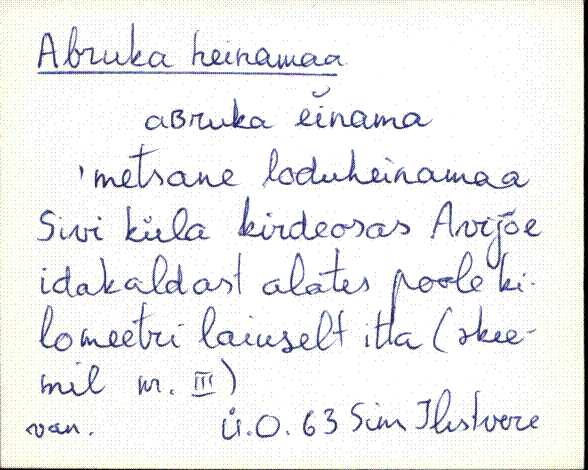 Abruka heinamaa
aʙruka ĕinama
'metsane loduheinamaa
Sivi küla kirdeosas Avijõe
idakaldast alates poole ki-
lomeetri laiuselt itta (skee-
mil nr. III)
van. Ü.O. 63 Sim